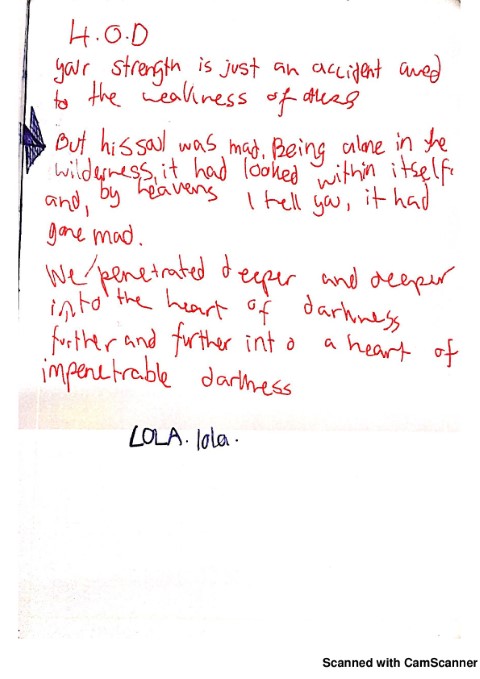 H.O.D
your strength is just an accident owed
to the weakness of others
But his soul was mad. Being alone in the
wilderness, it had looked within itself
and, by heavens I tell you, it had
gone mad.
We penetrated deeper and deeper
into the heart of darkness
further and further into a heart of
impenetrable darkness
LOLA. lola.
Scanned with CamScanner